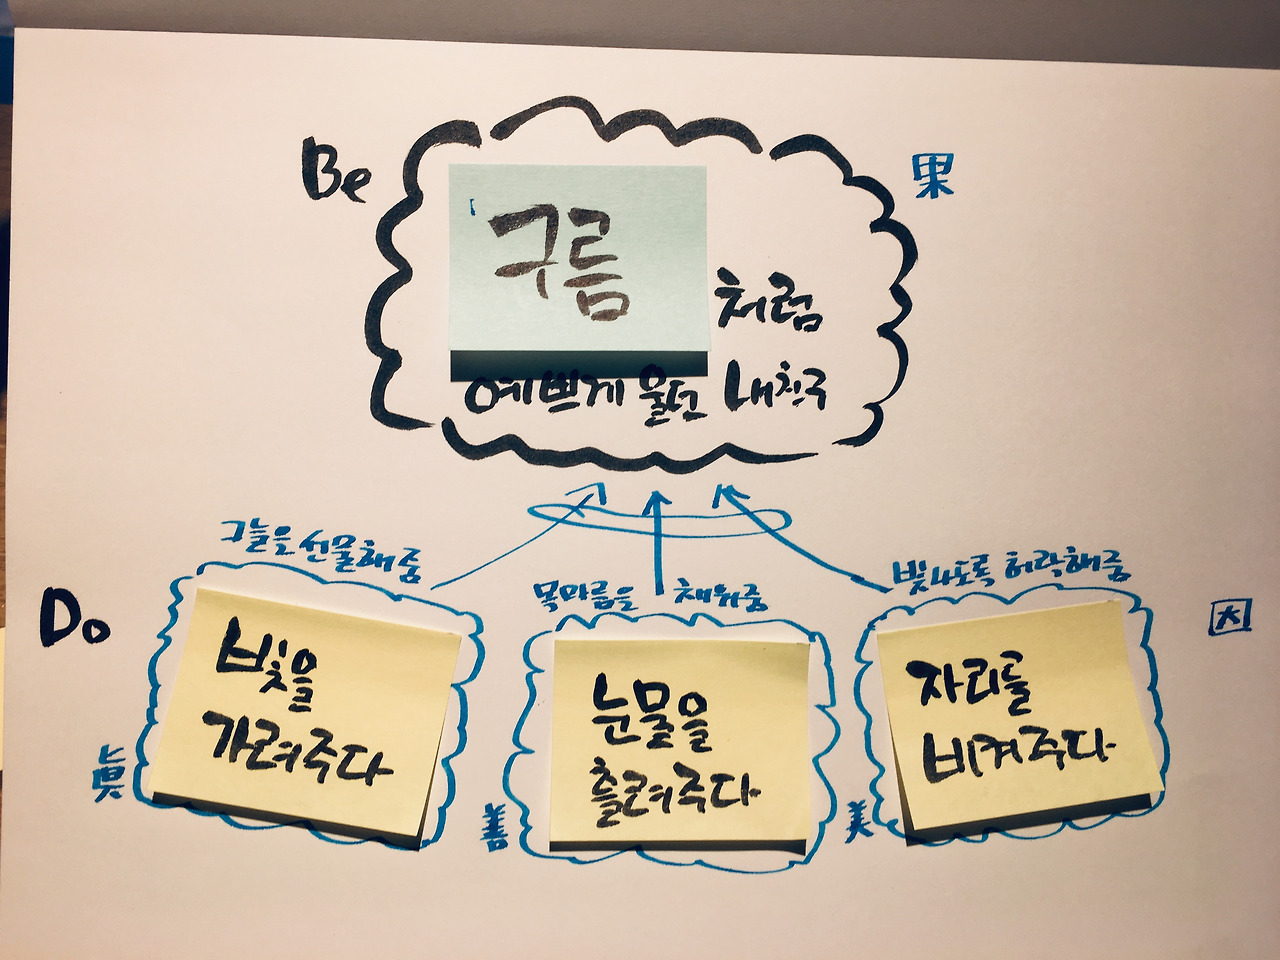 Be
果
구름
처럼
예쁘게 울던 내친구
그늘을 선물해줌
목마름을 채워줌
빛나도록 허락해줌
Do
因
빛을
가려주다
眞
눈물을
흘려주다
善
자리를
비켜주다
美